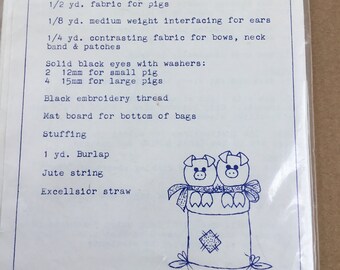 1/2 yd. fabric for pigs
1/8 yd. medium weight interfacing for ears
1/4 yd. contrasting fabric for bows, neck
band & patches
Solid black eyes with washers:
2 12mm for small pig
4 15mm for large pigs
Black embroidery thread
Mat board for bottom of bags
Stuffing
1 yd. Burlap
Jute string
Excellsior straw